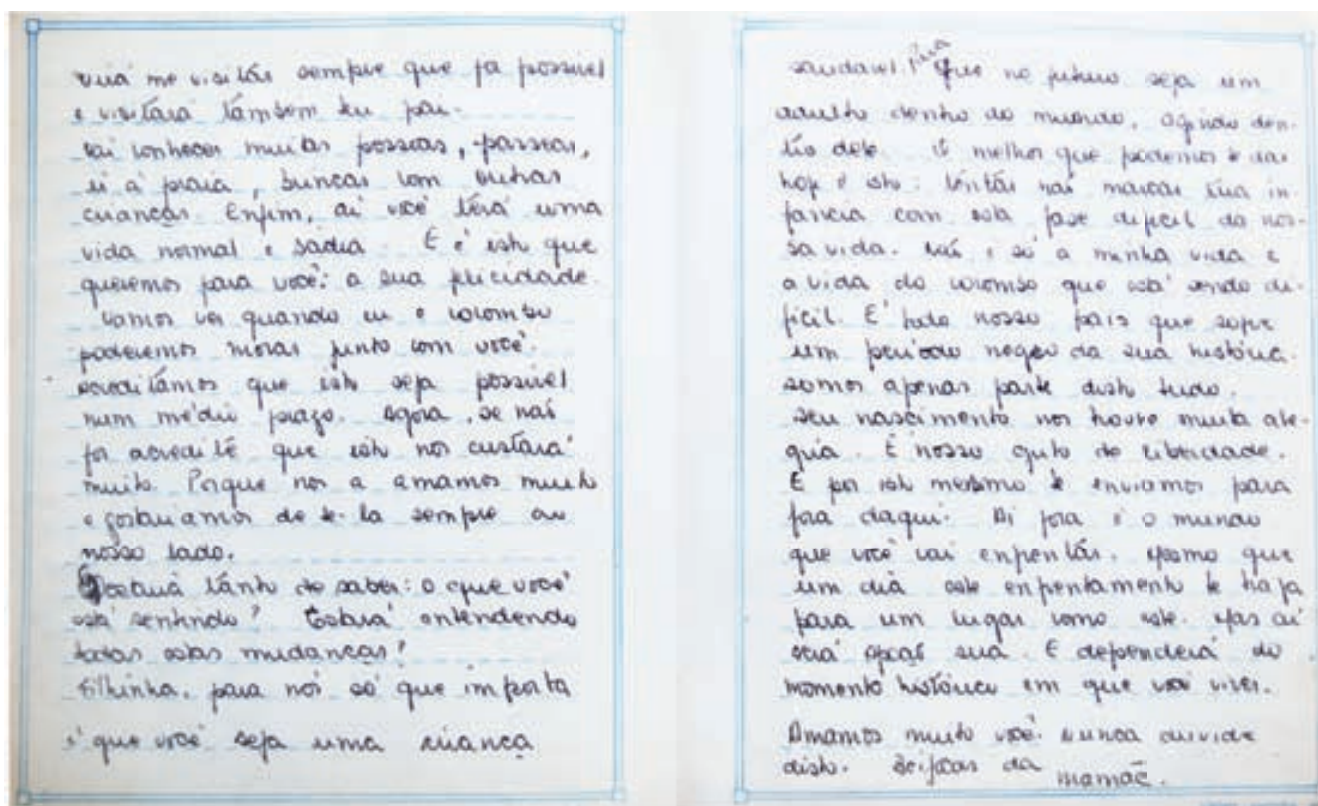 virá me visitar sempre que fa possivel
e visitará também teu pai.
vai conhecer muitas pessoas, passear,
ir à praia, brincar com outras
crianças. Enfim, aí você terá uma
vida normal e sadia. E é isto que
queremos para você: a sua felicidade.
vamos ver quando eu e colombo
poderemos morar junto com você.
acreditamos que isto seja possivel
num médio prazo. Agora, se não
for acredite que isto nos custará
muito. Porque nos a amamos muito
e gostariamos de te-la sempre ao
nosso lado.
Gostaria tanto de saber: o que você
está sentindo? Estará entendendo
todas estas mudanças?
Filhinha, para nós só que importa
é que você seja uma criança
saudavel. Pra que no futuro seja um
adulto dentro do mundo, agindo den-
tro dele. O melhor que podemos te dar
hoje é isto: tentar não marcar tua in-
fancia com esta fase dificil da nos-
sa vida. Não é só a minha vida e
a vida do colombo que está sendo di-
ficil. E' todo nosso país que sofre
um periodo negro da sua história.
somos apenas parte disto tudo.
seu nascimento nos trouxe muita ale-
gria. É nosso grito de liberdade.
E por isto mesmo te enviamos para
fora daqui. Aí fora é o mundo
que você vai enfrentar. Mesmo que
um dia este enfrentamento te traga
para um lugar como este. Mas aí
será opção sua. E dependerá do
momento histórico em que você viver.
Amamos muito você. Nunca duvide
disto. Beijocas da mamãe.